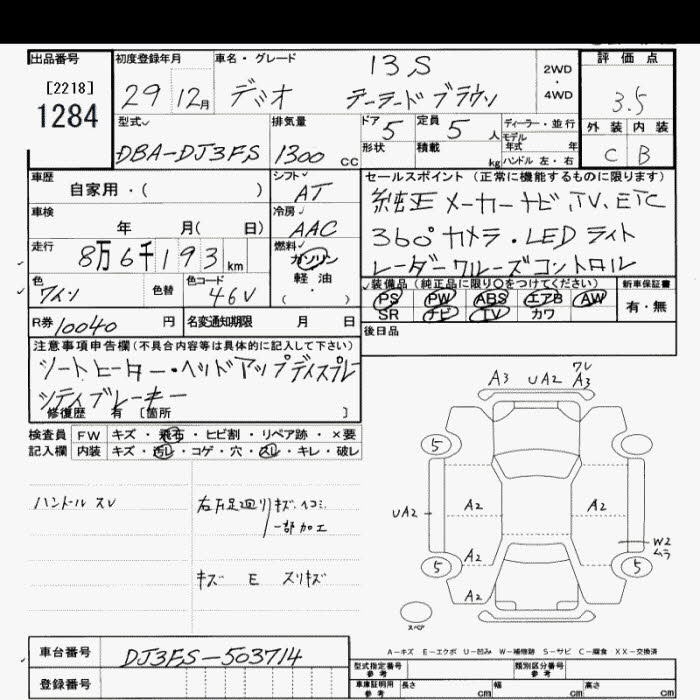 出品番号 初度登録年月 車名・グレード 13S 2WD・4WD 評価点
[2218] 1284 29 12月 デミオ テーラードブラウン 3.5
型式 排気量 ドア 5 定員 5 人 ディーラー・並行 外装 内装
形状 積載 kg モデル年式 年
DBA-DJ3FS 1300 cc ハンドル 左・右 C B
車歴 シフト AT セールスポイント (正常に機能するものに限ります)
自家用・( ) 純正メーカーナビ,TV、ETC
車検 年 月( 日) 冷房 AAC 360°カメラ・LEDライト
走行 8万6千193km 燃料 ガソリン レーダークルーズコントロール
軽油・( )
色 ワイン 色替 色コード 46V 装備品 (純正品に限り〇をつけてください) 新車保証書
PS PW ABS エアB AW 有・無
SR ナビ TV カワ
R券 10040 円 名変通知期限 月 日 後日品
注意事項申告欄(不具合内容等は具体的に記入して下さい)
シートヒーター・ヘッドアップディスプレ
シティブレーキー
修復歴 有 〔箇所 〕
検査員 FW キズ・飛石・ヒビ割・リペア跡・×要
記入欄 内装 キズ・汚レ・コゲ・穴・スレ・キレ・破レ
A3 UA2 ワレ A3
5
ハンドル スレ 右下足廻り キズ、ヘコミ
一部加工
UA2 A2 A2
W2 ムラ
A2
5 5
キズ E スリキズ
A2
スペア
A-キズ E-エクボ U-凹み W-補修跡 S-サビ C-腐食 XX-交換済
車台番号 DJ3FS-503714
型式指定番号 参考 類別区分番号 参考
登録番号 車庫証明用 参考 長さ cm 幅 cm 高さ cm